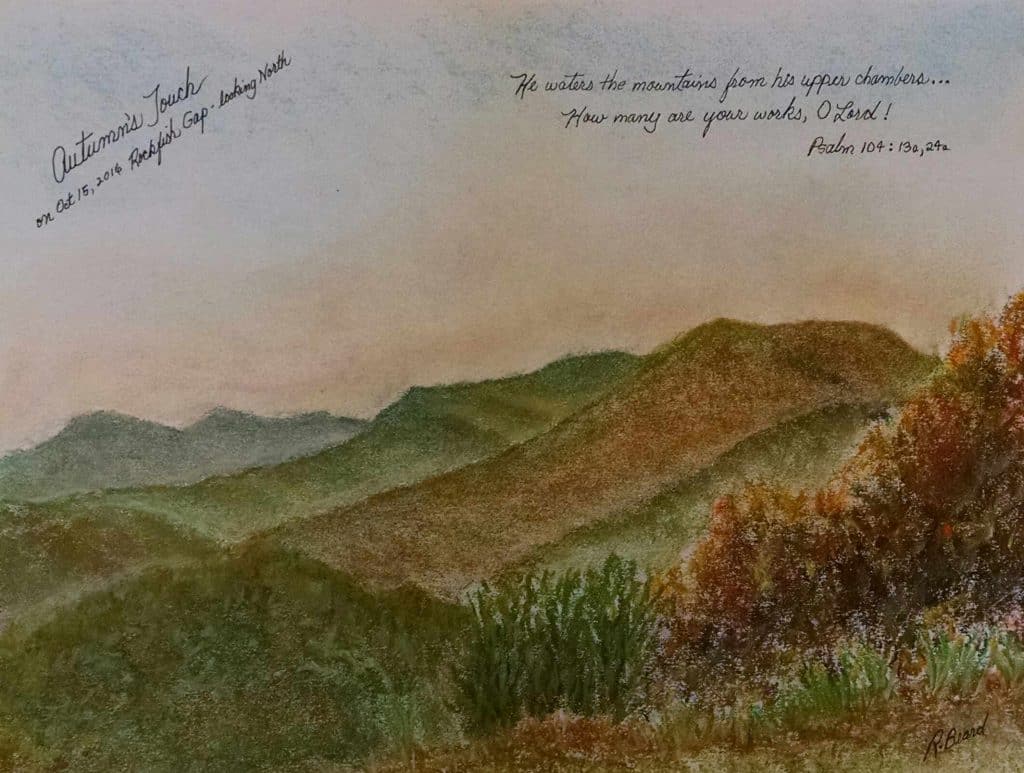 Autumn's Touch
on Oct 15, 2016 Rockfish Gap - looking North
He waters the mountains from his upper chambers...
How many are your works, O Lord!
Psalm 104:13a,24a
R. Beard